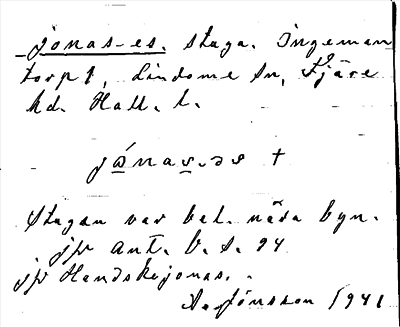 jonas-es. stuga. Ingeman
torp 1, Lindome sn, Fjäre
hd. Hall. l.
jånas.əs +
Stugan var bel. nära byn.
jfr ant. b. s. 94
jfr Handskejonas.
A. Jönsson 1941